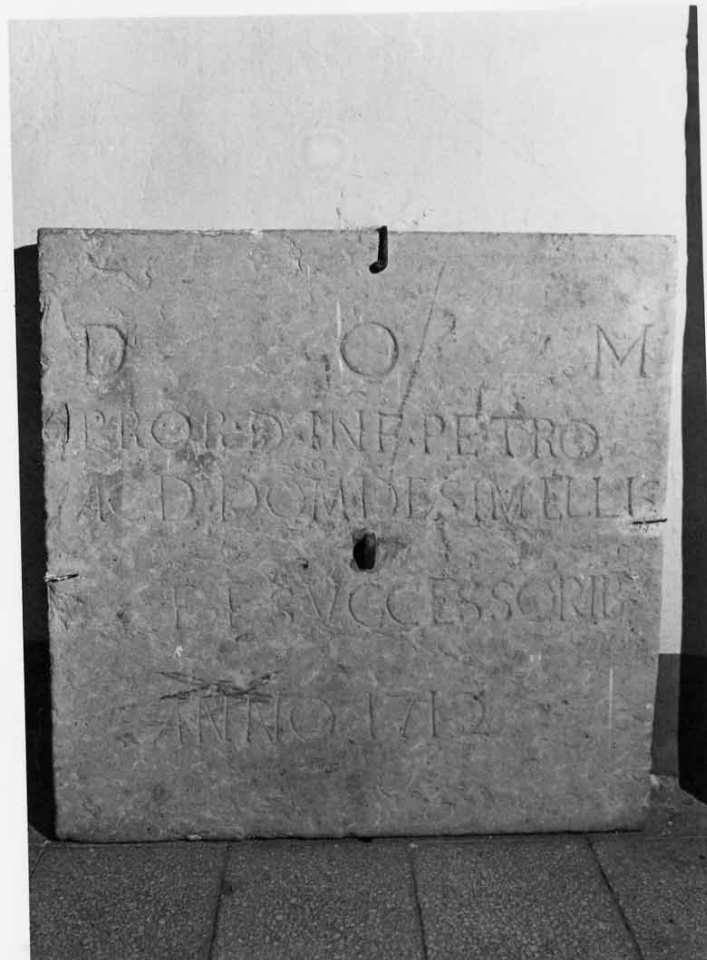 D O M
PRO R·D·INF·PETRO
AC D·DOM DE SIMELLIS
ET SVCCESSORIB
ANNO 1712